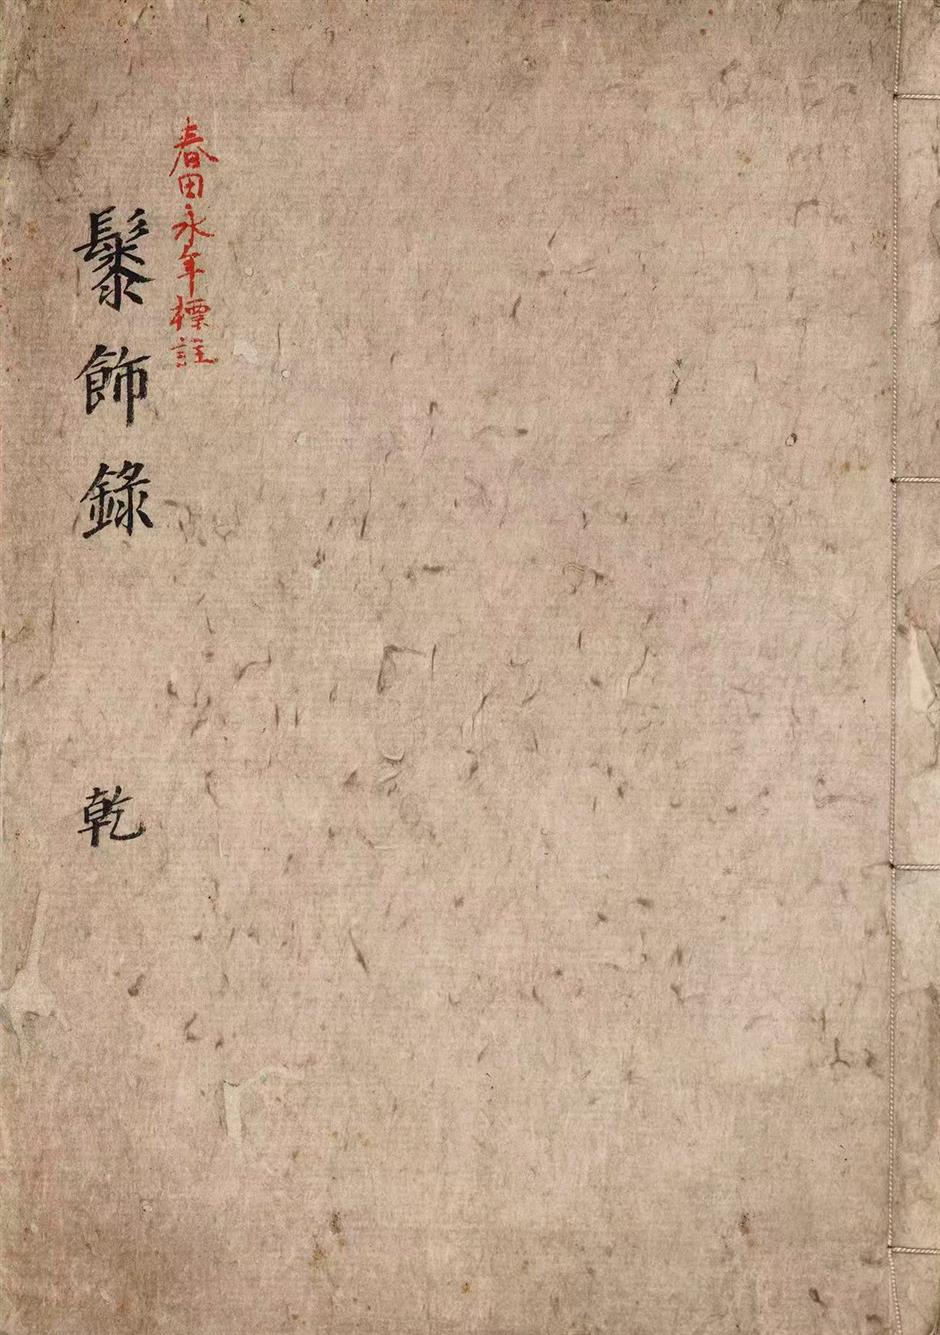 春田永年標註
髹飾錄
乾